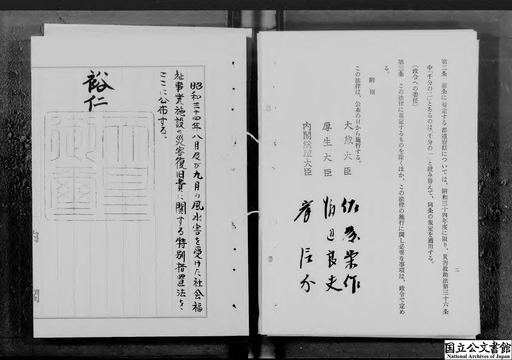 二
第二条 前条に規定する都道府県については、昭和三十四年度に限り、災害救助法第三十六条
中「千分の二」とあるのは「千分の一」と読み替えて、同条の規定を適用する。
(政令への委任)
第三条 この法律に規定するものを除くほか、この法律の施行に関し必要な事項は、政令で定め
る。
附 則
この法律は、公布の日から施行する。
大蔵大臣 佐藤栄作
厚生大臣 渡辺良夫
内閣総理大臣 岸信介
昭和三十四年八月及び九月の風水害を受けた社会福
祉事業施設の災害復旧費に関する特別措置法を
ここに公布する。
裕仁
内閣
国立公文書館
National Archives of Japan